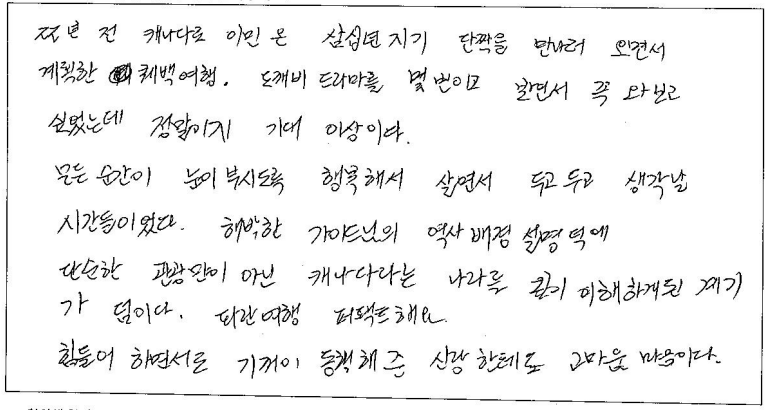 22년 전 캐나다로 이민 온 삼십년 지기 단짝을 만나러 오면서
계획한 퀘백여행. 도깨비 드라마를 몇 번이고 보면서 꼭 와보고
싶었는데 정말이지 기대 이상이다.
모든 순간이 눈이 부시도록 행복해서 살면서 두고 두고 생각날
시간들이었다. 해박한 가이드님의 역사 배경 설명 덕에
단순한 관광만이 아닌 캐나다라는 나라를 깊이 이해하게된 계기
가 덤이다. 파란여행 퍼팩트해요.
힘들어 하면서도 기꺼이 동행해 준 신랑한테도 고마운 마음이다.